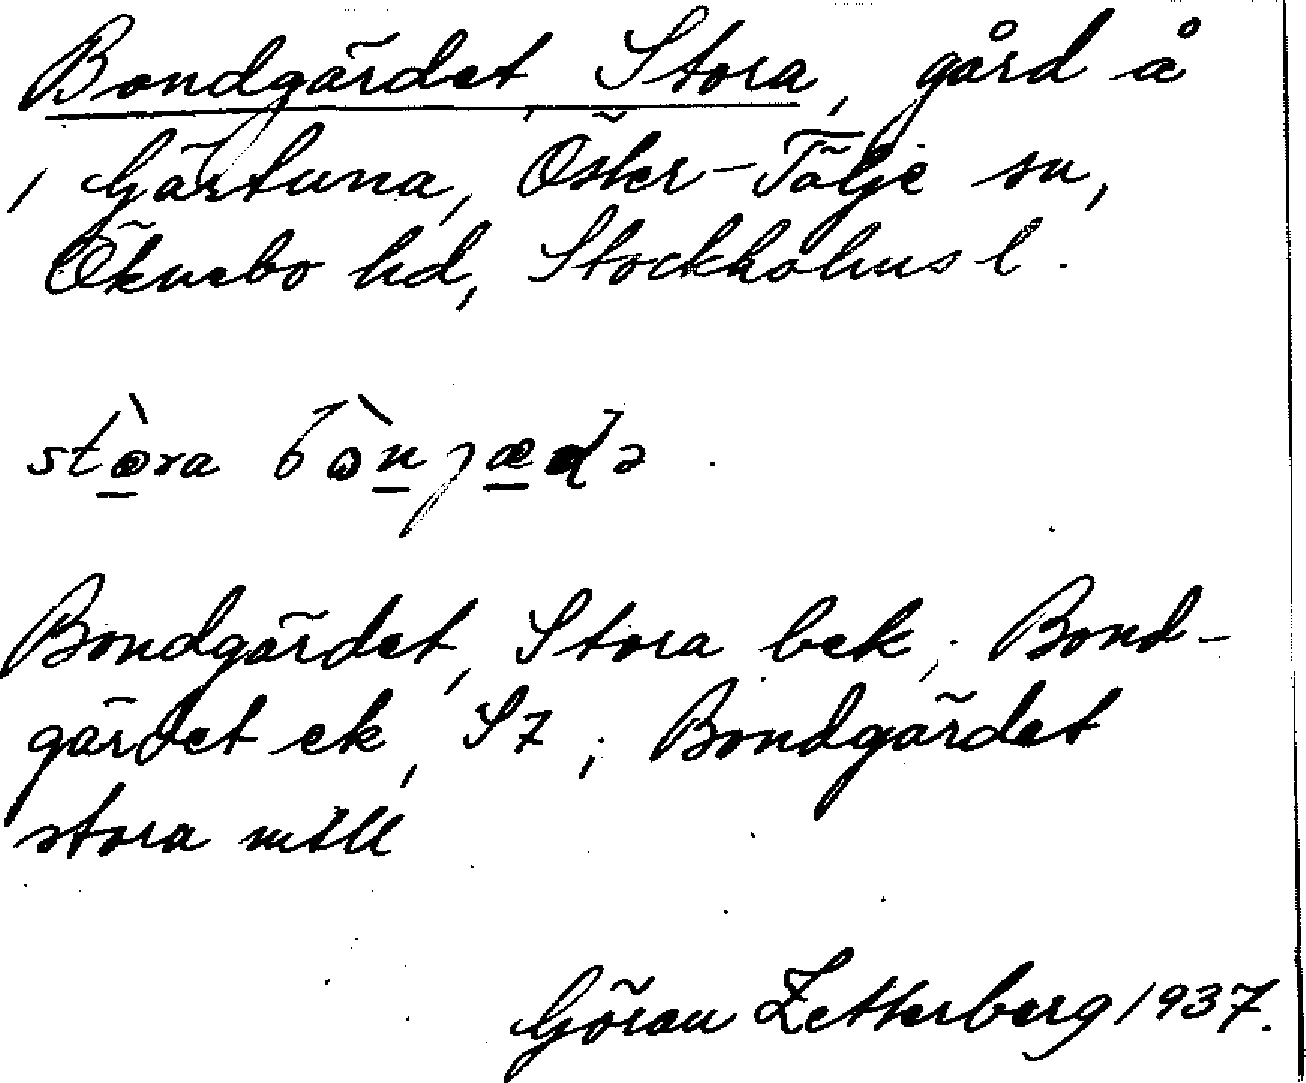 Bondgärdet, Stora, gård å
, Gärtuna, Öster-Tälje sn,
Öknebo hd, Stockholms l.
stora
Bondgärdet, Stora bek; Bond-
gärdet ek, S7; Bondgärdet
stora mtll
Göran Zetterberg 1937.